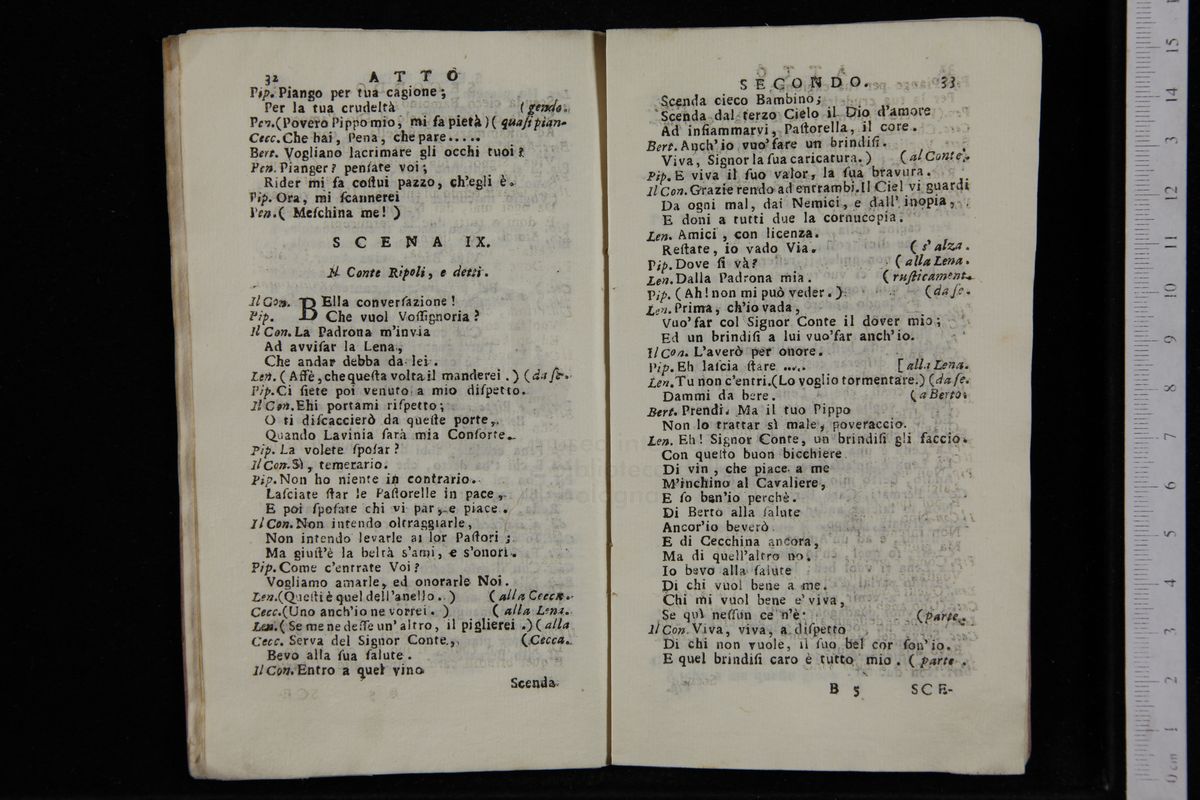 32 ATTO
Pip. Piango per tua cagione;
Per la tua crudeltà (gendo.
Pen.(Povero Pippo mio, mi fa pietà)(quaſi pian-
Cecc. Che hai, Pena, che pare.....
Bert. Vogliano lacrimare gli occhi tuoi?
Pen. Pianger? penſate voi;
Rider mi fa coſtui pazzo, ch'egli è.
Pip. Ora, mi ſcannerei
Pen.( Meſchina me! )
SCENA IX.
Il Conte Ripoli, e detti.
Il Con. BElla converſazione!
Pip. Che vuol Voſſignoria?
Il Con. La Padrona m'invia
Ad avviſar la Lena,
Che andar debba da lei.
Len. ( Affè, che queſta volta il manderei. ) (da ſe.
Pip. Ci ſiete poi venuto a mio diſpetto.
Il Con. Ehi portami riſpetto;
O ti diſcaccierò da queſte porte,
Quando Lavinia ſarà mia Conſorte.
Pip. La volete ſpoſar?
Il Con. Sì, temerario.
Pip. Non ho niente in contrario.
Laſciate ſtar le Paſtorelle in pace,
E poi ſpoſate chi vi par, e piace.
Il Con. Non intendo oltraggiarle,
Non intendo levarle ai lor Paſtori;
Ma giuſt'è la beltà s'ami, e s'onori.
Pip. Come c'entrate Voi?
Vogliamo amarle, ed onorarle Noi.
Len.(Queſti è quel dell'anello. ) (alla Cecca.
Cecc.(Uno anch'io ne vorrei. ) ( alla Lena.
Len.( Se me ne deſſe un'altro, il piglierei.)(alla
Cecc. Serva del Signor Conte, (Cecca.
Bevo alla ſua ſalute.
Il Con. Entro a quel vino
Scenda
SECONDO. 33
Scenda cieco Bambino;
Scenda dal terzo Cielo il Dio d'amore
Ad infiammarvi, Paſtorella, il core.
Bert. Anch'io vuo' fare un brindiſi.
Viva, Signor la ſua caricatura. ) (al Conte.
Pip. E viva il ſuo valor, la ſua bravura.
Il Con. Grazie rendo ad entrambi. Il Ciel vi guardi
Da ogni mal, dai Nemici, e dall' inopia,
E doni a tutti due la cornucopia.
Len. Amici, con licenza.
Reſtate, io vado Via. ( s'alza.
Pip. Dove ſi và? ( alla Lena.
Len. Dalla Padrona mia. ( ruſticament.
Pip. ( Ah! non mi può veder. ) (da ſe.
Len. Prima, ch'io vada,
Vuo' far col Signor Conte il dover mio;
Ed un brindiſi a lui vuo' far anch'io.
Il Con. L'averò per onore.
Pip. Eh laſcia ſtare ..... [ alla Lena.
Len. Tu non c'entri.(Lo voglio tormentare.) (da ſe.
Dammi da bere. (a Berto.
Bert. Prendi. Ma il tuo Pippo
Non lo trattar sì male, poveraccio.
Len. Eh! Signor Conte, un brindiſi gli faccio.
Con queſto buon bicchiere
Di vin, che piace a me
M'inchino al Cavaliere,
E ſo ben'io perchè.
Di Berto alla ſalute
Ancor'io beverò
E di Cecchina ancora,
Ma di quell'altro no.
Io bevo alla ſalute
Di chi vuol bene a me.
Chi mi vuol bene e' viva,
Se quì neſſun ce n'è. (parte.
Il Con. Viva, viva, a diſpetto
Di chi non vuole, il ſuo bel cor ſon'io.
E quel brindiſi caro è tutto mio. ( parte.
B 5 SCE-